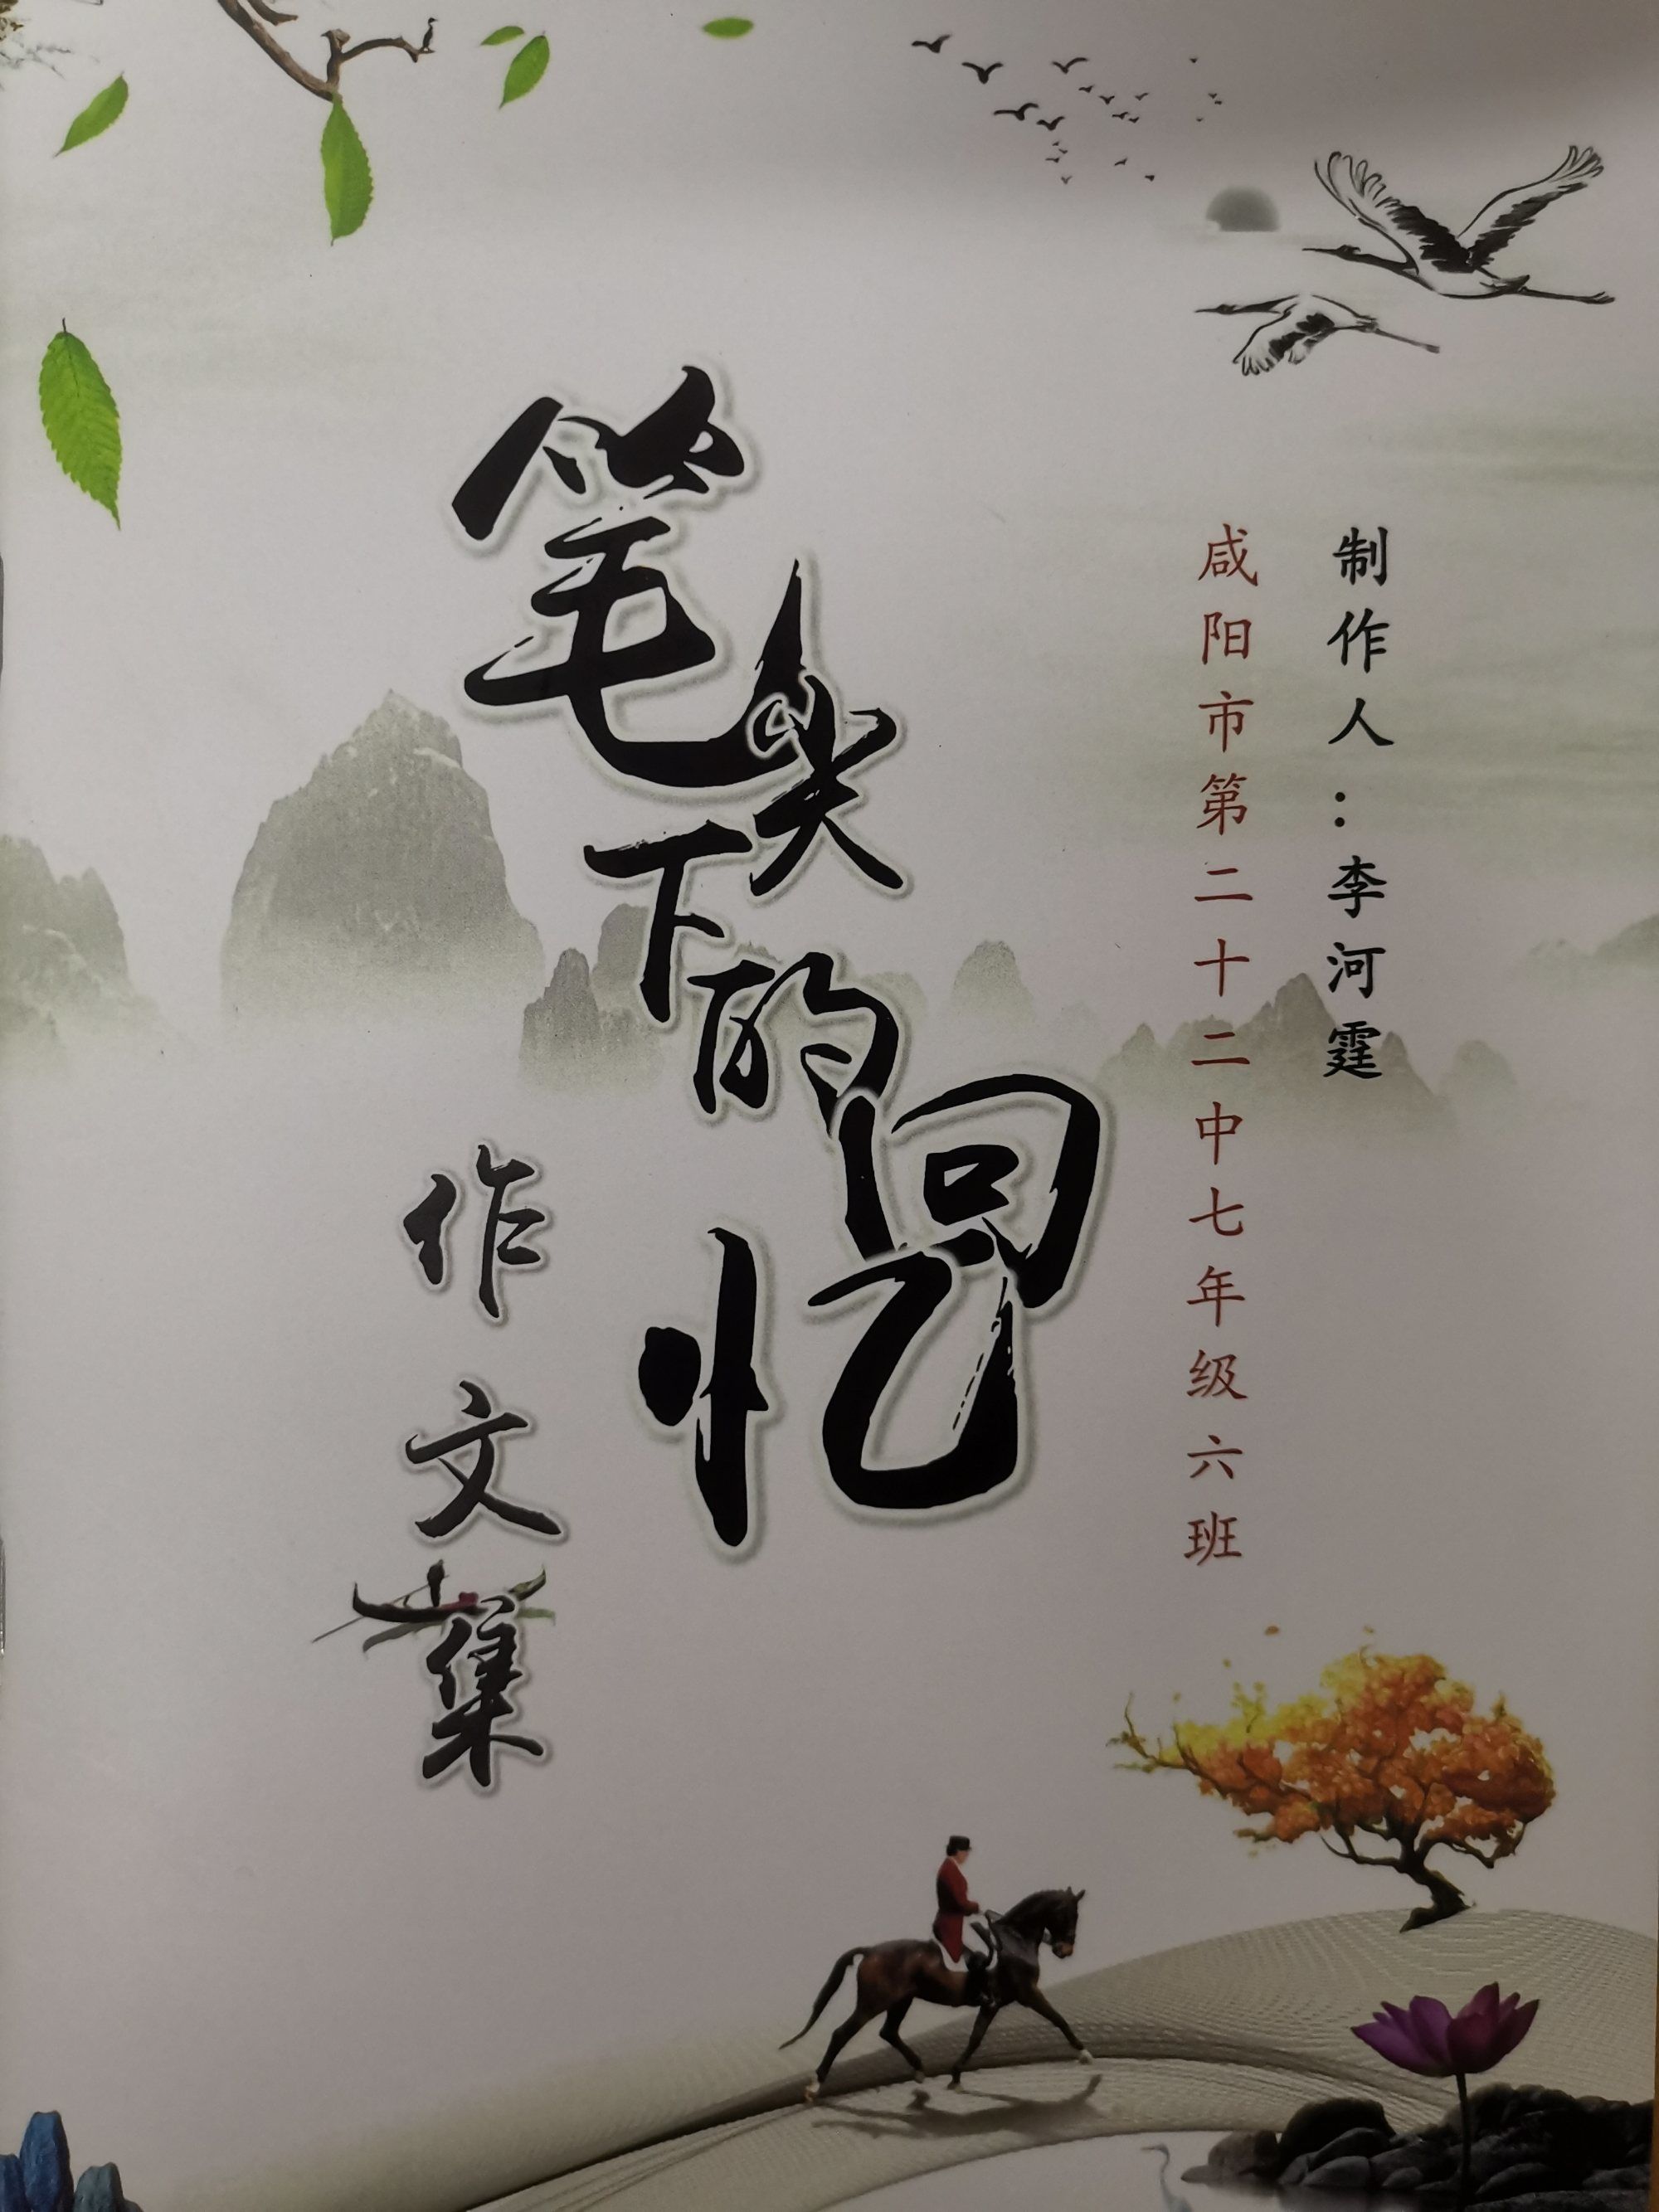 制作人：李河霆
咸阳市第二十二中七年级六班
笔尖下的回忆
作文集